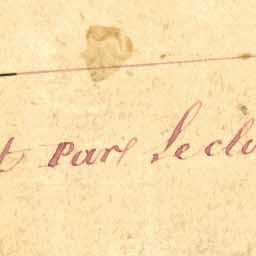 t par Leclo